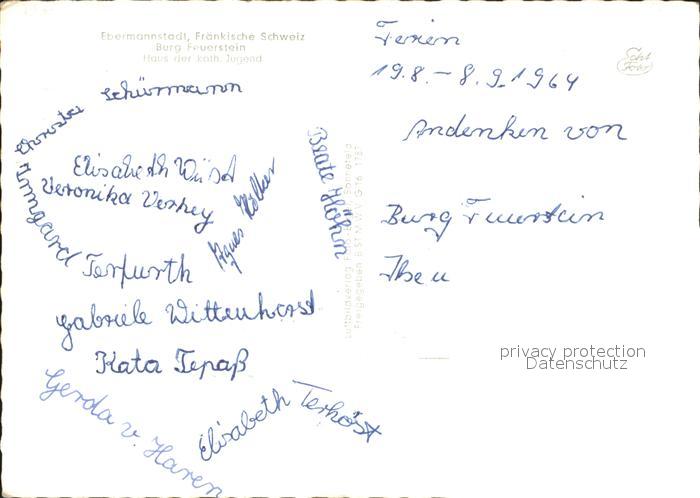 Ebermannstadt, Fränkische Schweiz
Burg Feuerstein
Haus der kath. Jugend
Ferien
19.8. – 8.9.1964
Echt Foto
Andenken von
Burg Feuerstein
Christa Schürmann
Elisabeth Wüst
Veronika Verhey
Irmgard Terfurth
Agnes Hölker
Beate Höhn
Gabriele Wittenhorst
Kata Tepaß
Gerda v. Haren
Elisabeth Terhorst
Luftbildverlag
Freigegeben
privacy protection
Datenschutz